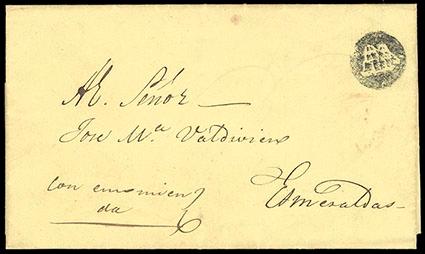 Al Señor
Jose Mᵃ Valdivieso
con encomien
da
Esmeraldas